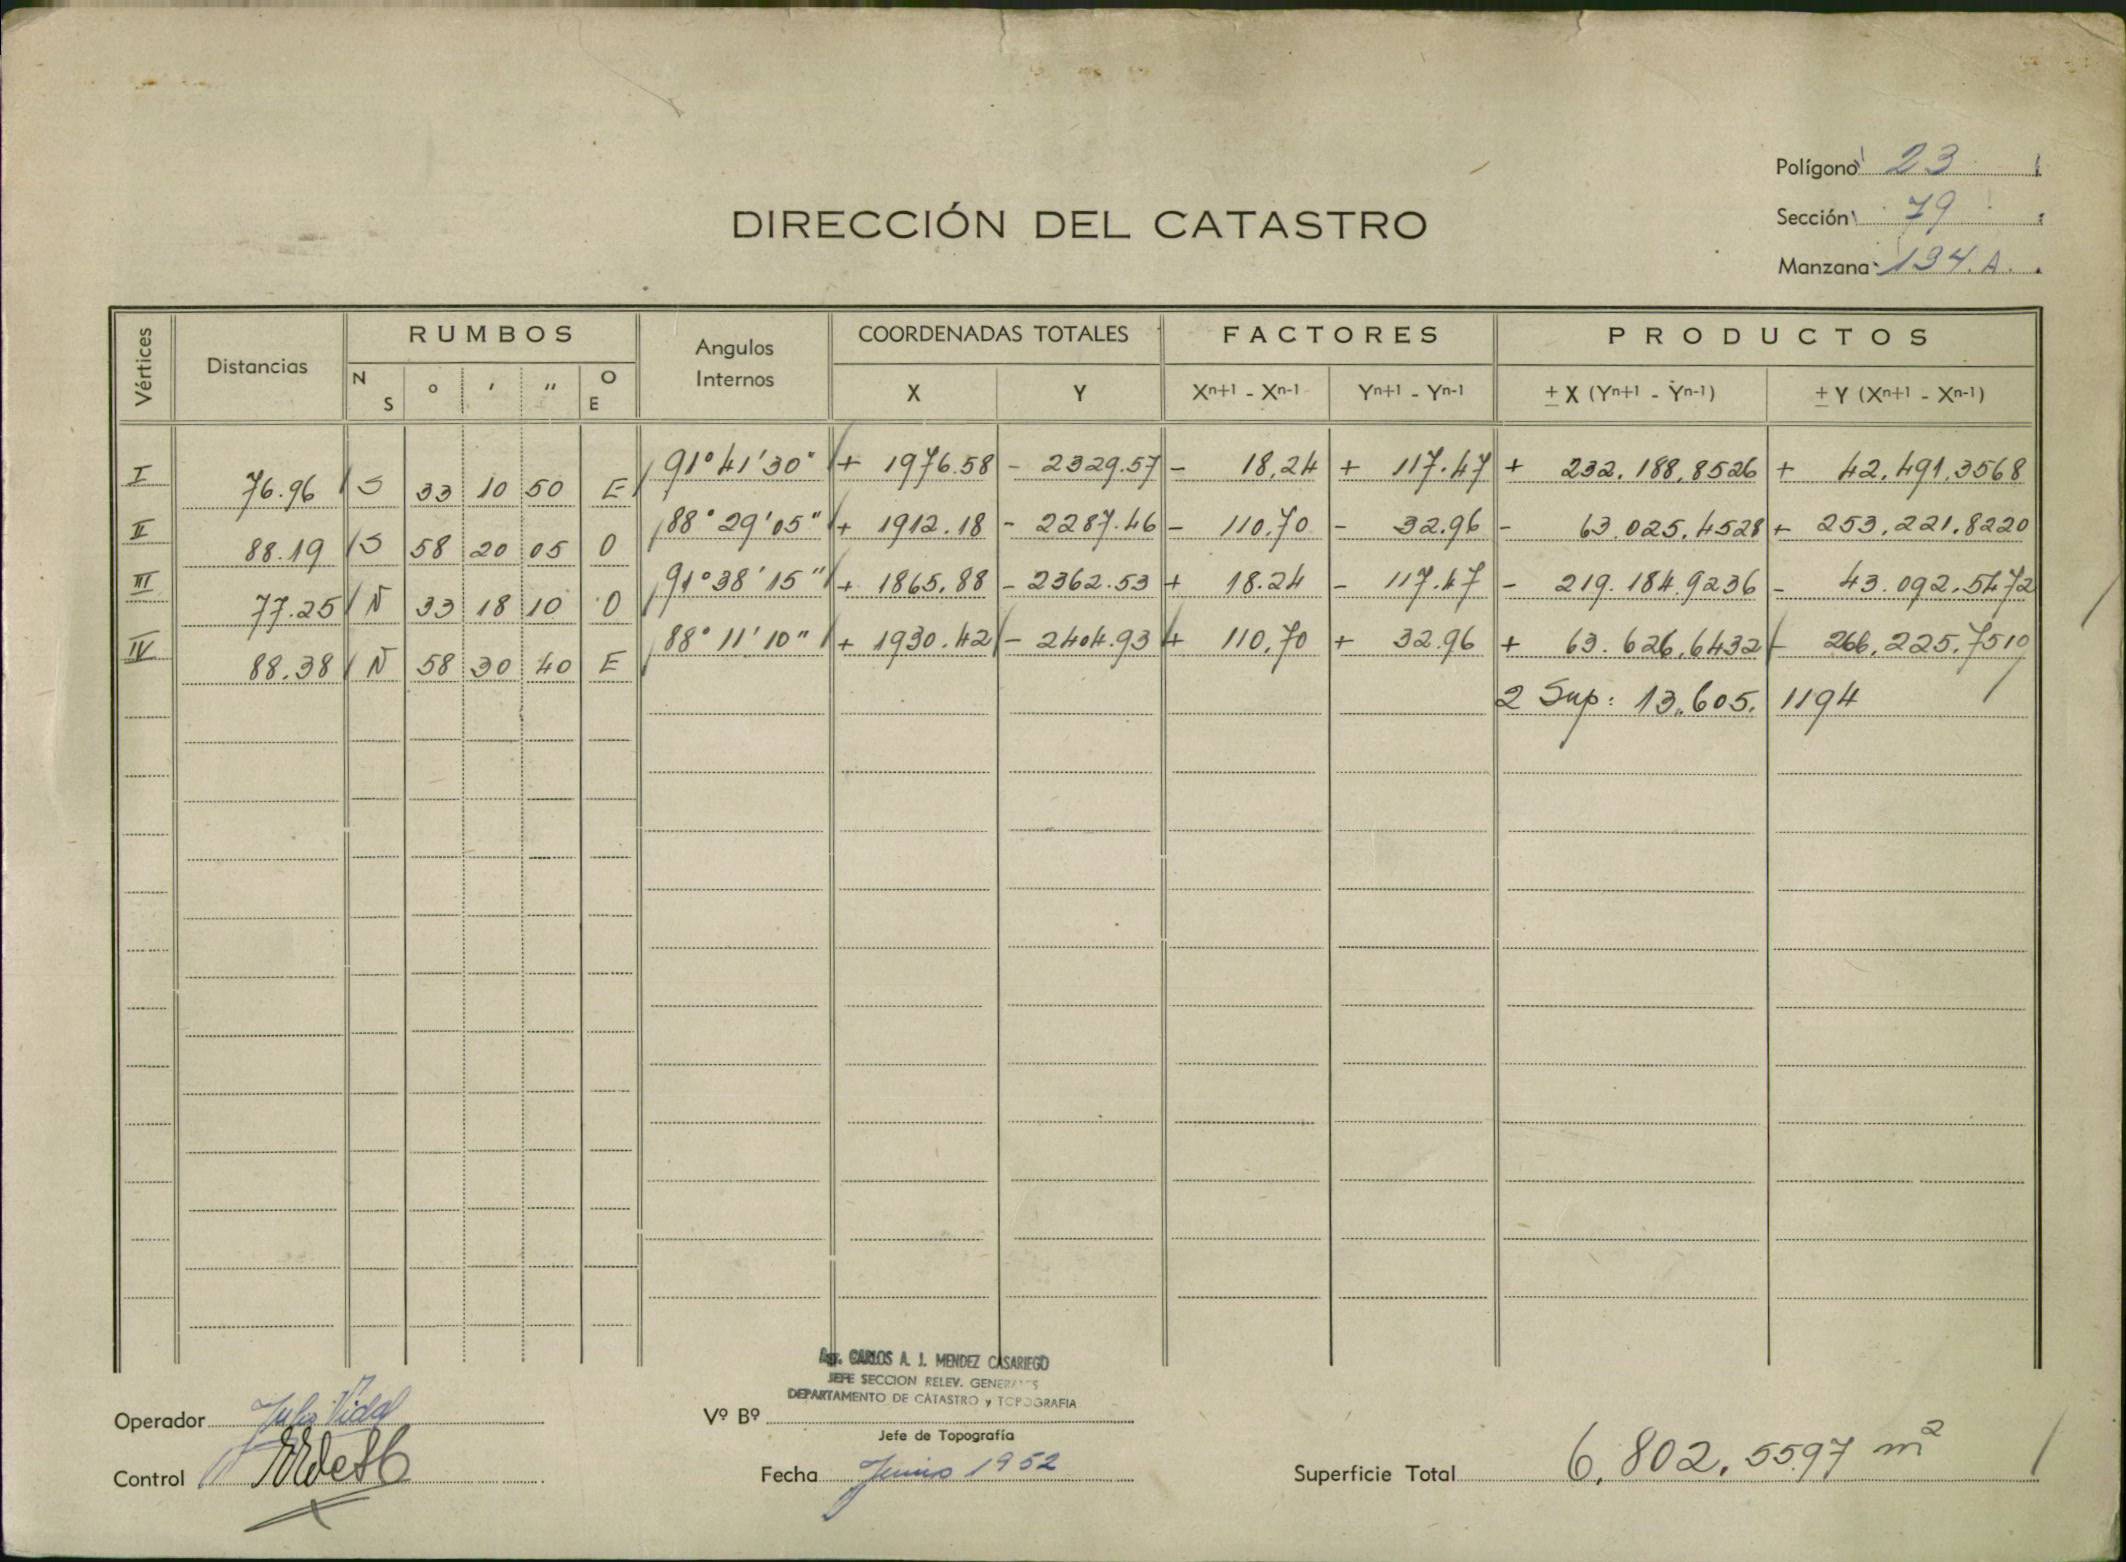 Polígono 23
Sección 79
Manzana 134.A.
DIRECCIÓN DEL CATASTRO
Vértices Distancias RUMBOS Angulos Internos COORDENADAS TOTALES FACTORES PRODUCTOS
N S ° ' " O E X Y Xn+1 - Xn-1 Yn+1 - Yn-1 ± X (Yn+1 - Yn-1) ± Y (Xn+1 - Xn-1)
I 76.96 S 33 10 50 E 91° 41' 30" + 1976.58 - 2329.57 - 18,24 + 117.47 + 232.188,8526 + 42.491,3568
II 88.19 S 58 20 05 O 88° 29' 05" + 1912.18 - 2287.46 - 110,70 - 32.96 - 63.025,4528 + 253.221,8220
III 77.25 N 33 18 10 O 91° 38' 15" + 1865,88 - 2362.53 + 18.24 - 117.47 - 219.184,9236 - 43.092,5472
IV 88.38 N 58 30 40 E 88° 11' 10" + 1930.42 - 2404.93 + 110,70 + 32.96 + 63.626,6432 - 266.225,7510
2 Sup: 13.605, 1194
Agr. CARLOS A. J. MENDEZ CASARIEGO
JEFE SECCION RELEV. GENERALES
DEPARTAMENTO DE CATASTRO y TOPOGRAFIA
Operador Julio Vidal
Vº Bº
Jefe de Topografía
Control
Fecha Junio 1952
Superficie Total 6.802,5597 m²